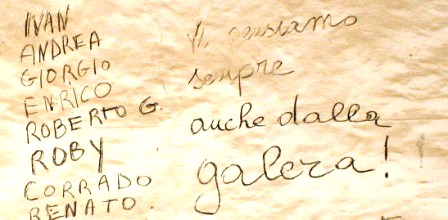 IVAN
ANDREA
GIORGIO
ENRICO
ROBERTO G.
ROBY
CORRADO
RENATO.
Vi pensiamo
sempre
anche dalla
galera!